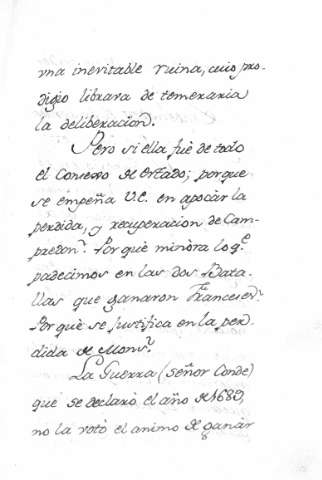 vna inevitable ruina, cuio pro-
digio librara de temeraria
la deliberacion.
Pero si ella fuè de todo
el Consexo de estado; porque
se empeña V.E. en apocar la
perdida, y recuperacion de Cam-
predon? Por què minora lo q.e
padecimos en las dos Bata-
llas que ganaron Franceses?
Por què se justifica en la per-
dida de Mons?
La Guerra (señor Conde)
que se declarò el año de 1689,
no la votò el animo de ganar